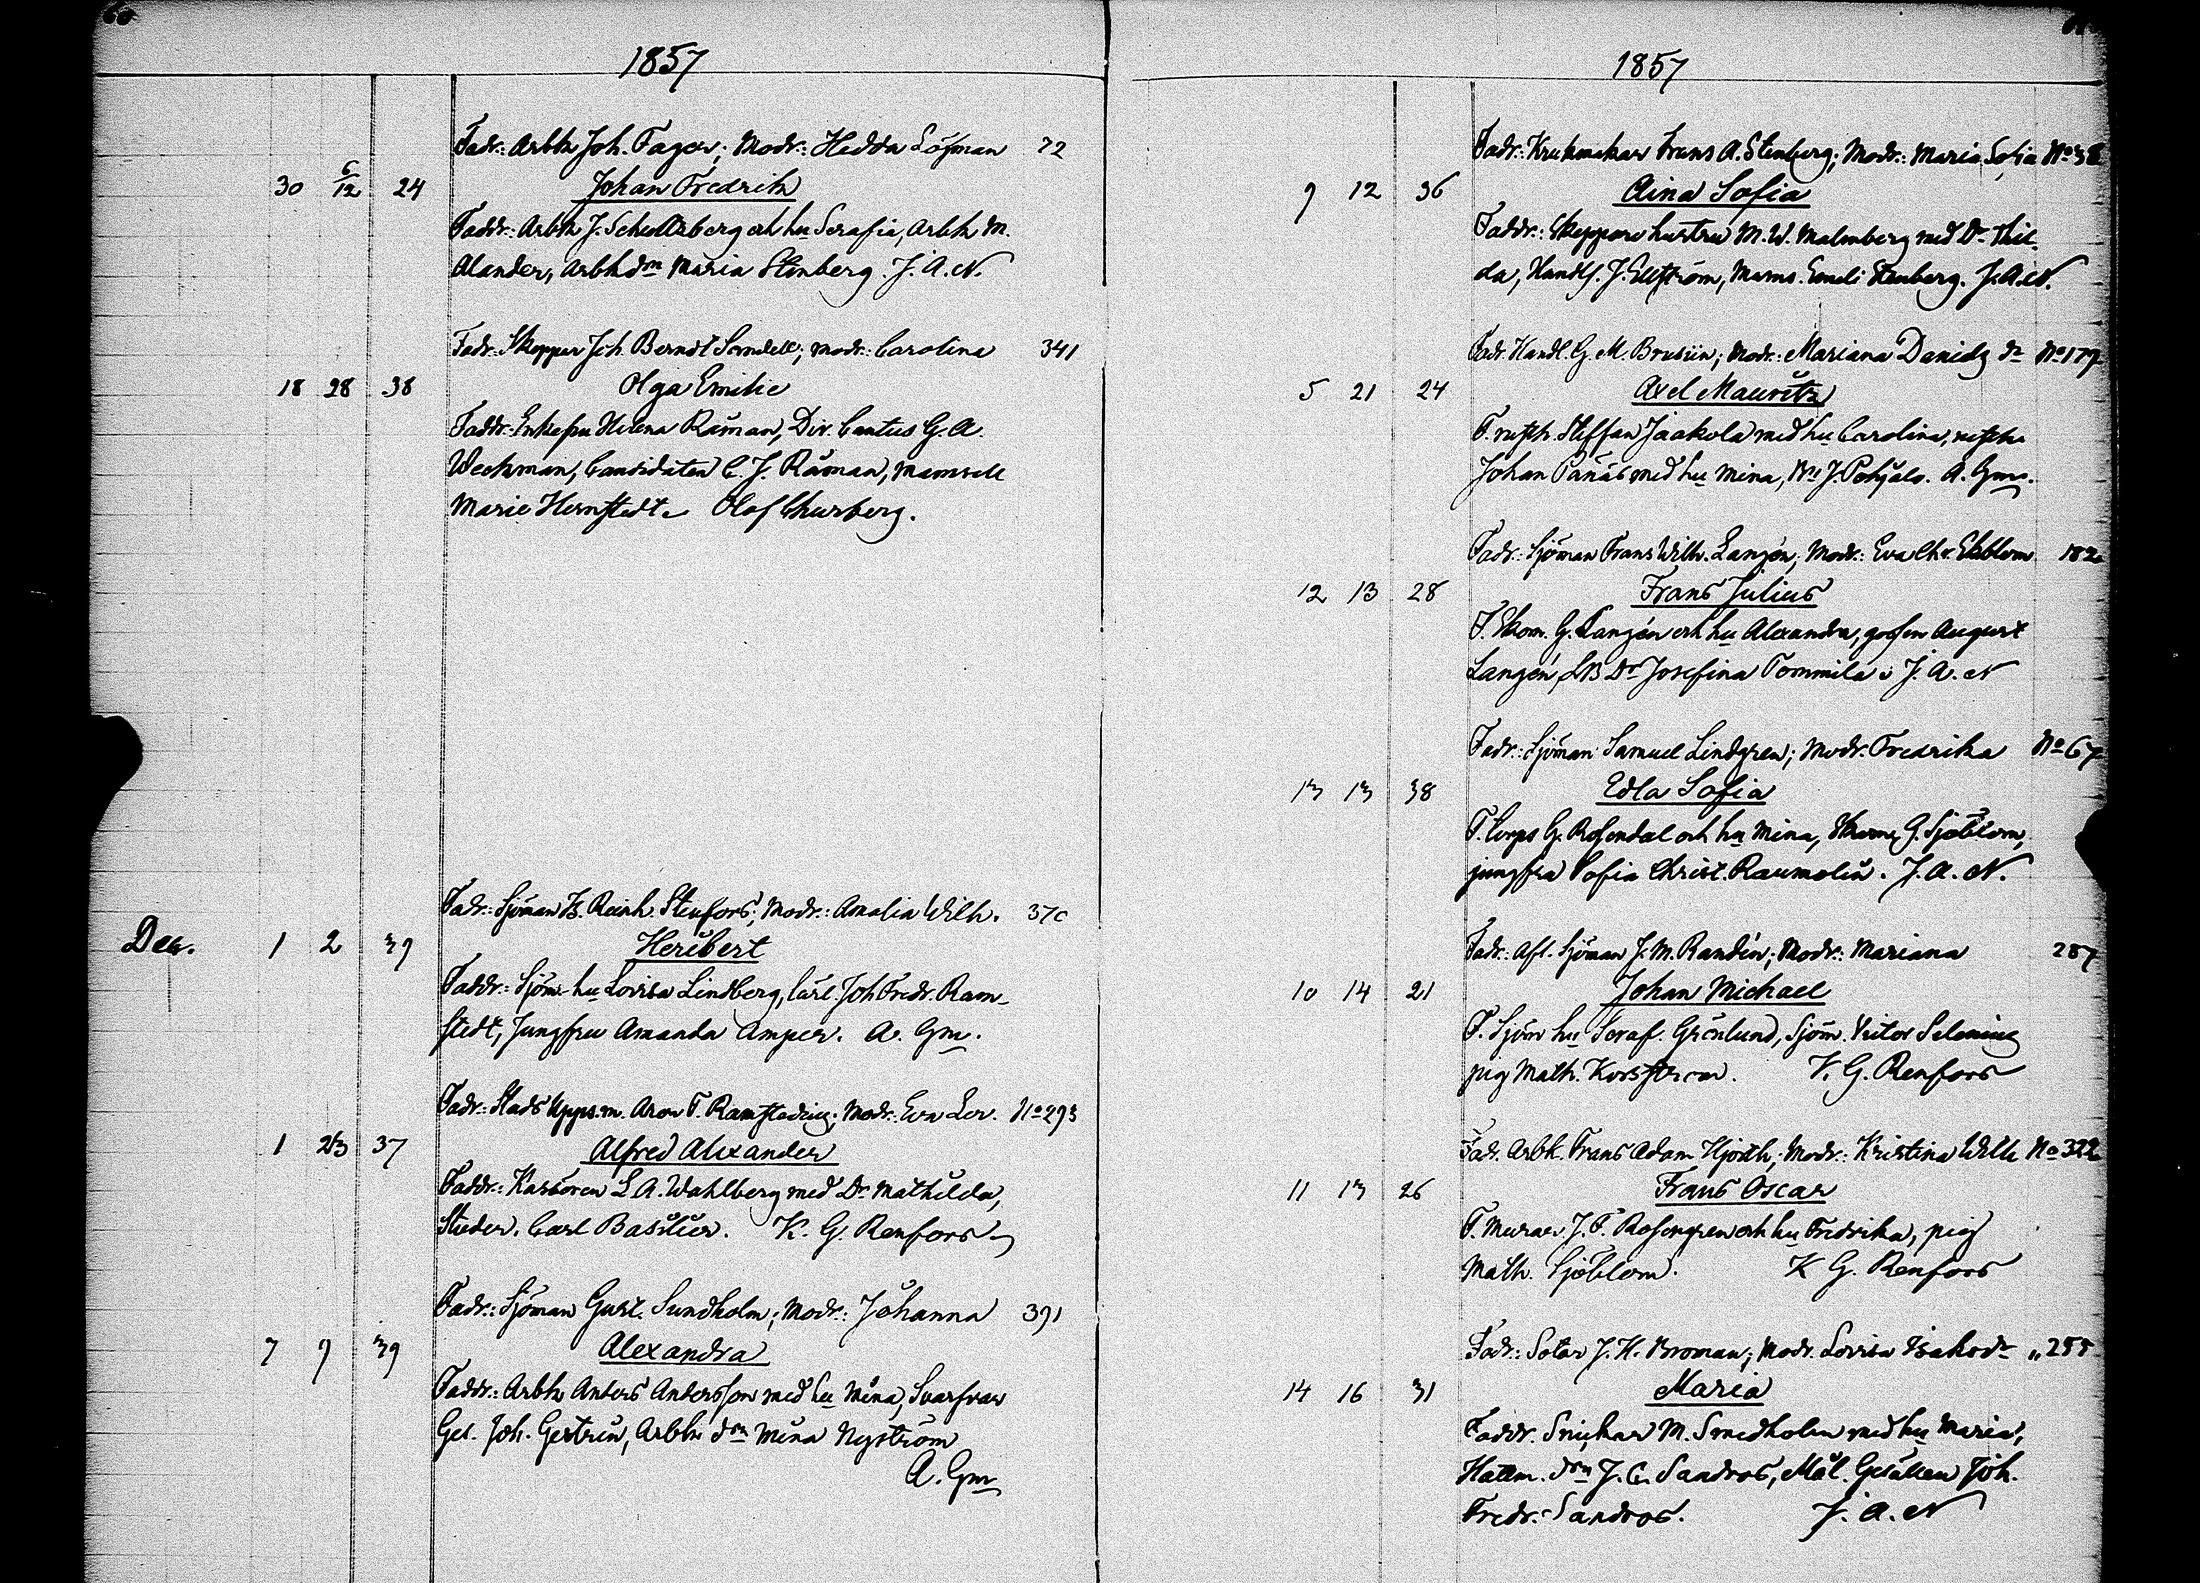 60
1857
Fadr: Arbk Joh. Fager; Modr: Hedda Löfman 72
30 6/12 24 Johan Fredrik
Faddr: Arbk J. Schullberg och hu Serafia, Arbk M.
Alander, Arbk dm Maria Stenberg. J. A. N.
Fadr. Skeppar Joh Berndt Sandell; modr: Carolina 341
18 28 38 Olga Emilie
Faddr: Enkefru Helena Råman, Dir. Cantus G. A.
Weckman, Candidaten C. J. Råman, Mamsell
Marie Hernstedt. Olof Churberg.
Fadr: Sjöman Is. Reinh. Stenfors; Modr: Amalia Wilh. 370
Dec. 1 2 39 Heribert
Faddr: Sjöm hu Lovisa Lindberg, lärl. Joh Fredr. Ram-
stedt, Jungfru Amanda Amper. A. Gm.
Fadr: Stads Upps.m. Aron F. Ramstadius; Modr: Eva Lov. No 293
1 23 37 Alfred Alexander
Faddr: Kassören L A. Wahlberg med Dr Mathilda,
Studer. Carl Basilier. K. G. Renfors
Fadr: Sjöman Gust. Sundholm; Modr: Johanna 391
7 9 39 Alexandra
Faddr: Arbk Anders Andersson med hu Mina, Svarfvar
Ges. Joh. Gestrin, Arbk dm Mina Nyström
A. Gm
1857
Fadr: Krukmakar Frans A. Stenberg; Modr: Maria Sofia No 38
9 12 36 Aina Sofia
Faddr: Skeppare hustru M. W. Malmberg med Dr Thil-
da, Handls. J. Ellström, Mams. Emeli Stenberg. J. A. N.
Fadr Handl. G. M. Brusiin; Modr: Mariana Danielsdr No 179
5 21 24 Axel Mauritz
F. rusth. Steffan Jaakola med hu Carolina, rusth
Johan Panás med hu Mina, J. Pohjalo. A. Gm.
Fadr: Sjöman Frans Wilh. Langén; Modr: Eva Chr. Ekblom 182
12 13 28 Frans Julius
F. Skom. G. Langén och hu Alexandra, gossen August
Langén, Dr Josefina Tommila. J. A. N
Fadr: Sjöman Samuel Lindgren; Modr. Fredrika No 67
13 13 38 Edla Sofia
F. Corps G. Rosendal och hu Mina, Skom G. Sjöblom,
jungfru Sofia Christ. Raumolin. J. A. N.
Fadr: Afl. Sjöman J. M. Randén; Modr: Mariana 287
10 14 21 Johan Michael
F. Sjöm hu Seraf. Grönlund, Sjöm. Viktor Seleni
pig Math. Korsström. K. G. Renfors
Fadr. Arbk. Frans Adam Hjorth, Modr: Kristina Wilh No 322
11 13 26 Frans Oscar
F. Murar J. F. Rosengren och hu Fredrika, pig
Math. Sjöblom. K G. Renfors
Fadr: Sotar J. H. Broman; Modr. Lovisa Isaksdr „ 255
14 16 31 Maria
Faddr. Snickar M. Smedholm med hu Maria,
Hattm. dm J. G. Sandros, Mål. Gesällen Joh.
Fredr. Sandros. J. A. N